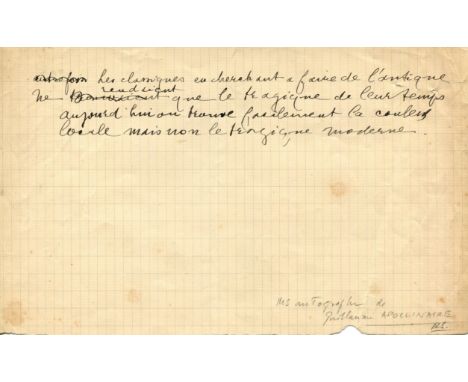 Les classiques en cherchant a faire de l'antique
rendaient
ne que le tragique de leur temps
aujourd'hui on trouve facilement la couleur
locale mais non le tragique moderne.
MS autographe de
Guillaume APOLLINAIRE